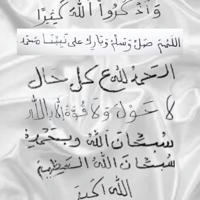 وَاذْكُرُوا اللهَ كَثِيرًا
اللهم صل وسلم وبارك على نبينا محمد
الحمد لله على كل حال
لا حول ولا قوة إلا بالله
سبحان الله وبحمده
سبحان الله العظيم
الله أكبر